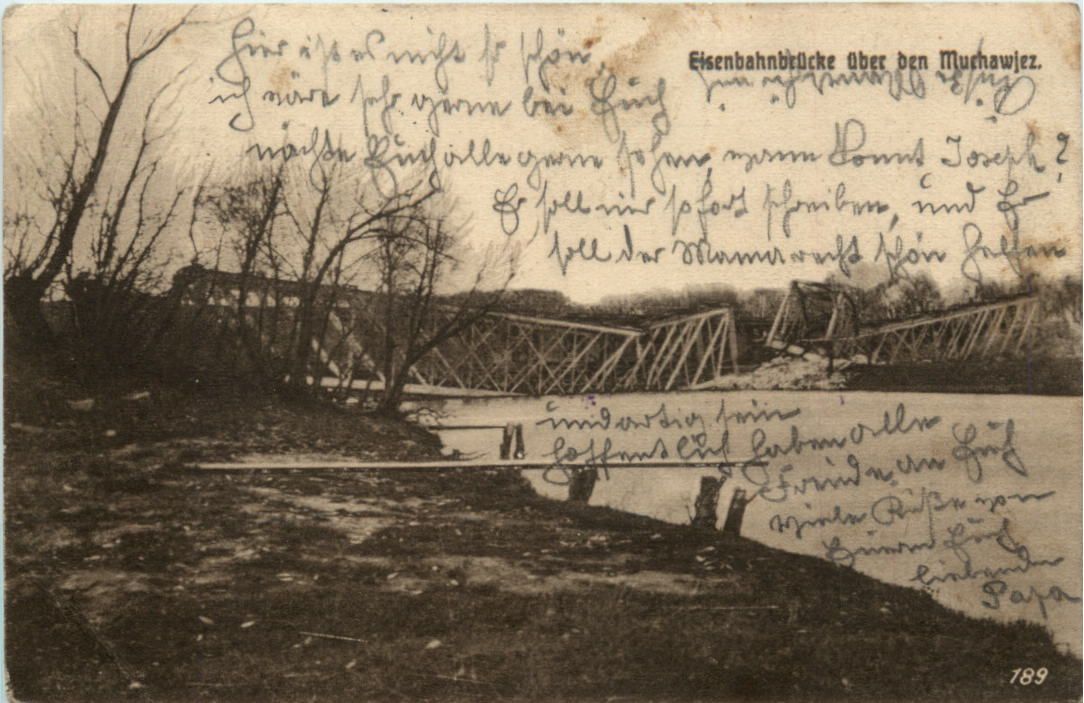 Eisenbahnbrücke über den Muchawjez.
Hier ist es nicht so schön,
ich wäre sehr gerne bei Euch
möchte Euch alle gerne sehen, wann kommt Joseph?
Er soll mir sofort schreiben, und Er
soll der Mama recht schön helfen
und artig sein
Hoffentlich haben alle
Freude an Euch
viele Küße von
Euerm Euch
liebenden
Papa
189